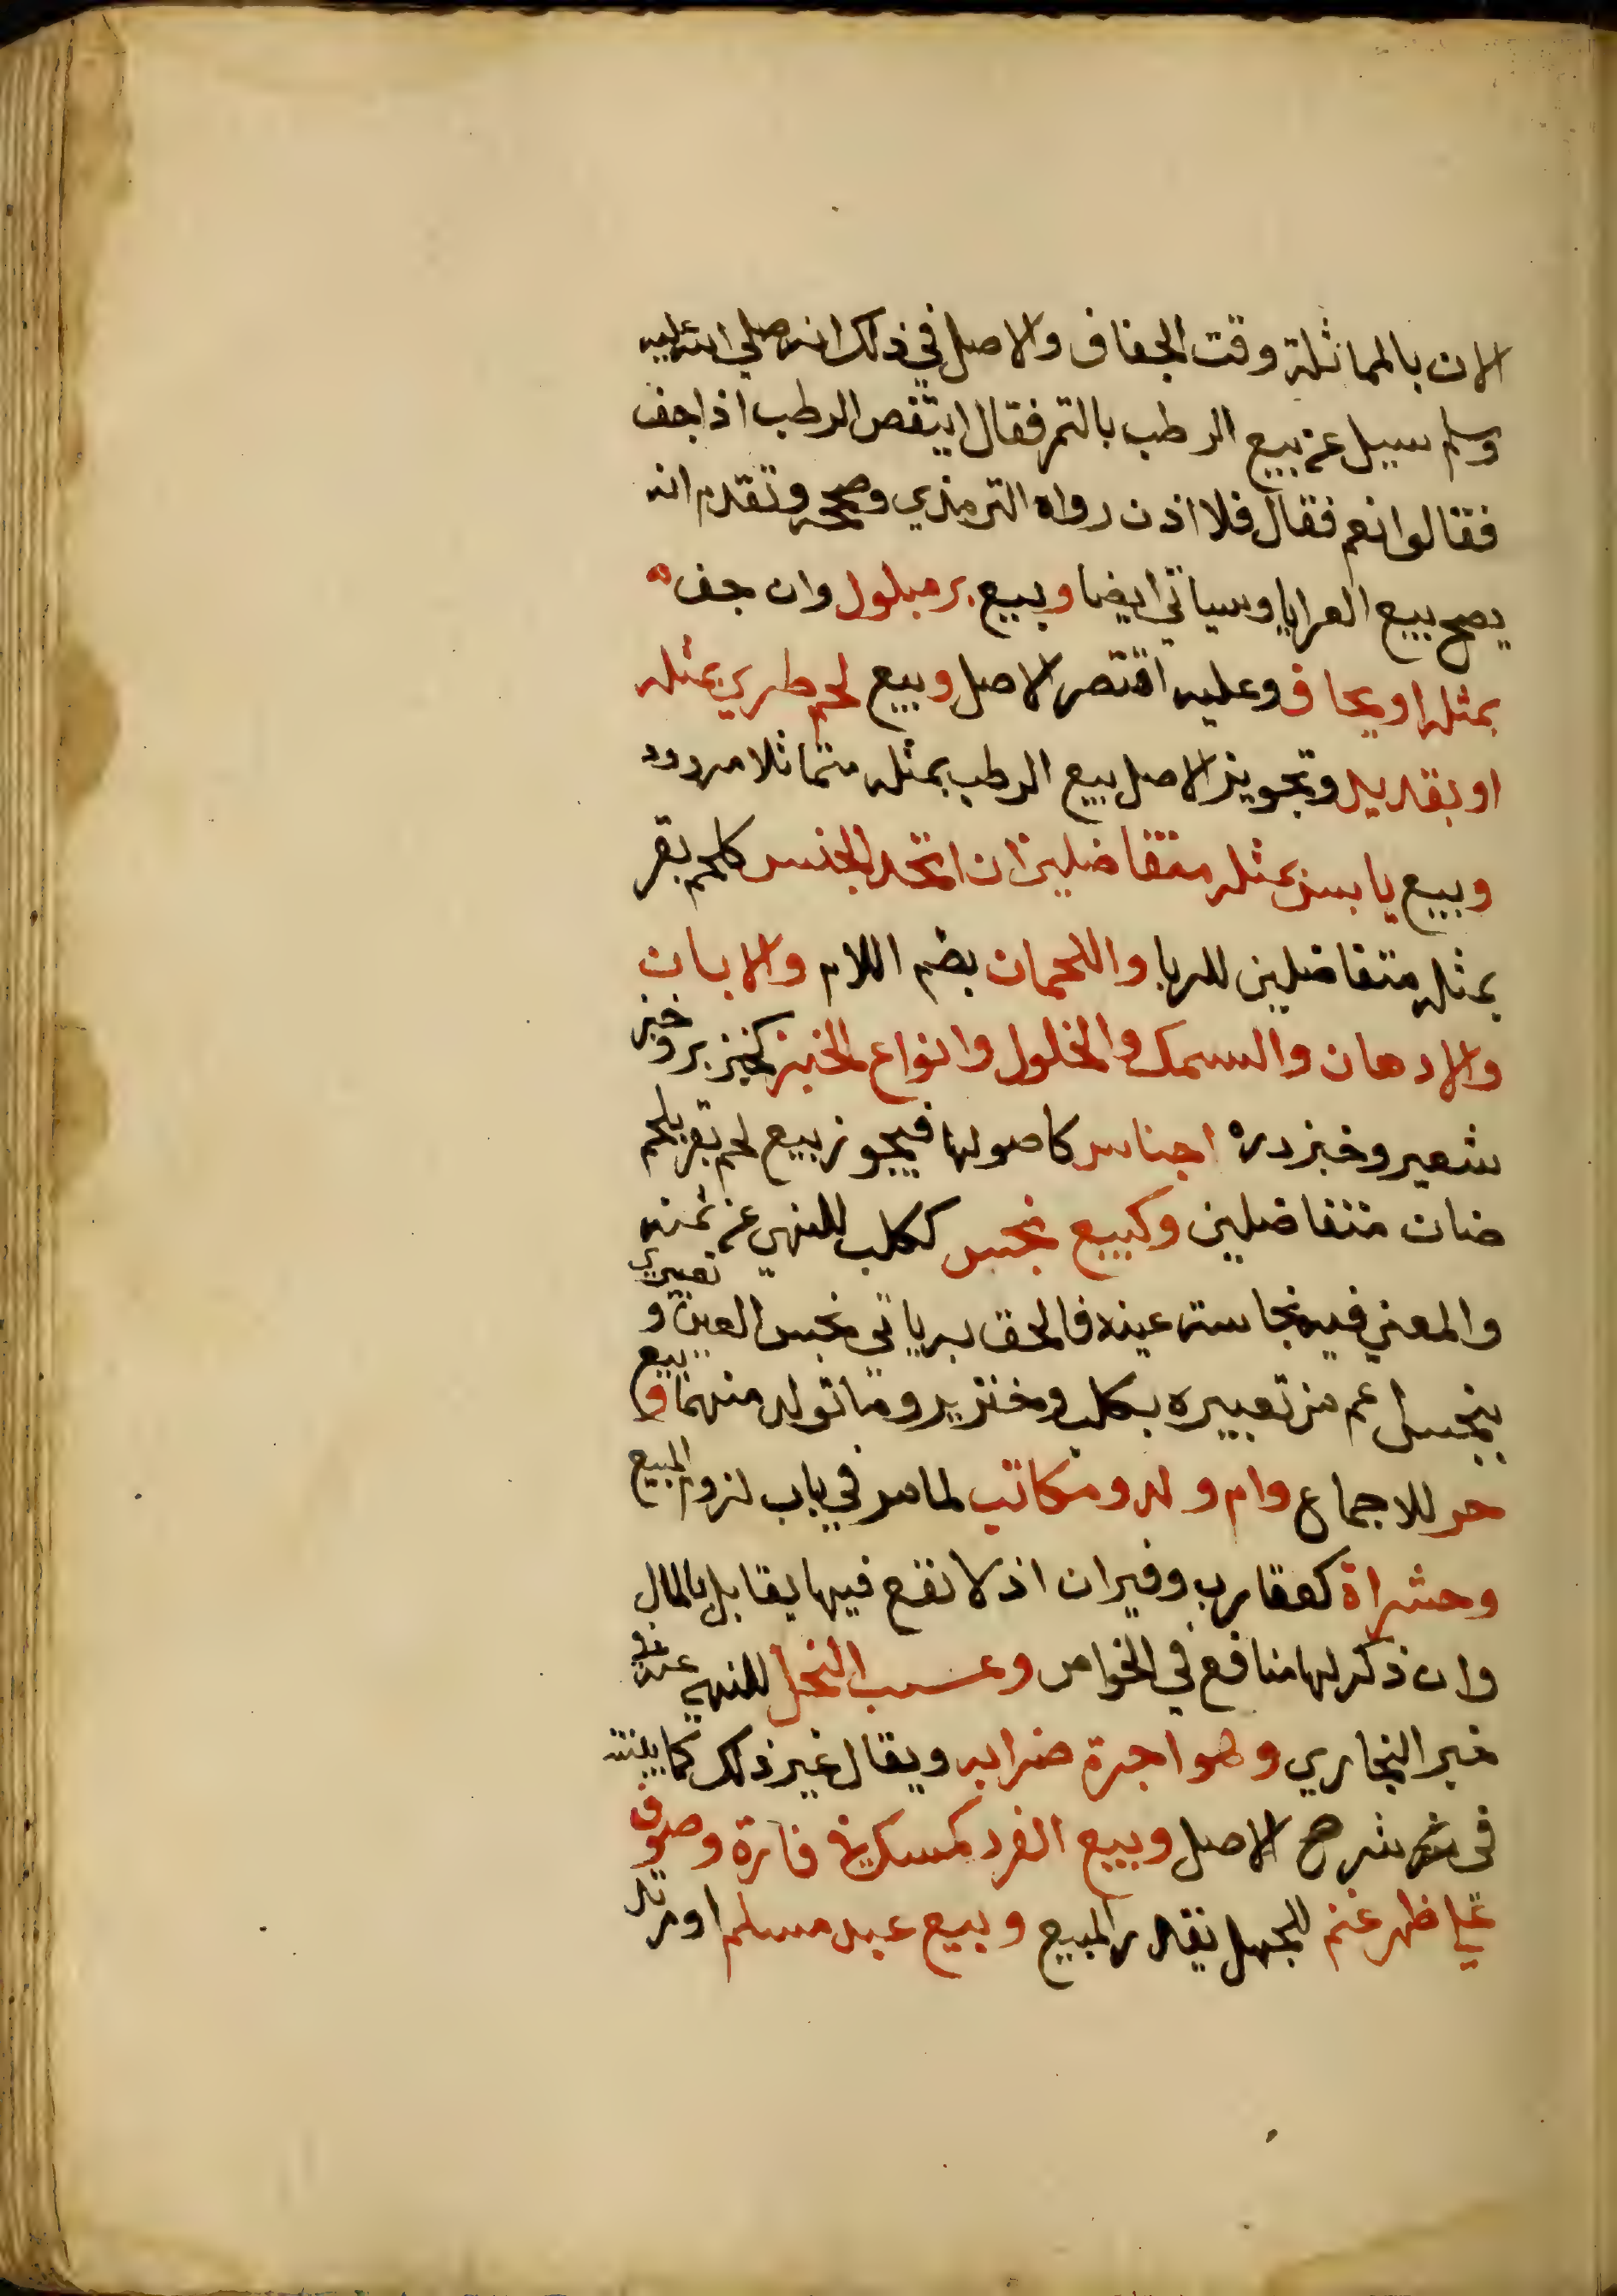 الان بالمماثلة وقت الجفاف والاصل في ذلك انه صلى الله عليه
وسلم سيل عن بيع الرطب بالتمر فقال اينقص الرطب اذا جف
فقالوا نعم فقال فلا اذن رواه الترمذي وصححه وتقدم انه
يصح بيع العرايا وسياتي ايضا وبيع بر مبلول وان جف
بمثله او بجاف وعليه اقتصر الاصل وبيع لحم طري بمثله
او بقديد وتجويز الاصل بيع الرطب بمثله متماثلا مردود
وبيع يابس بمثله متفاضلين ان اتحد الجنس كلحم بقر
بمثله متفاضلين للربا واللحمان بضم اللام والالبان
والادهان والسمك والخلول وانواع الخبز كخبز بر وخبز
شعير وخبز دره اجناس كاصولها فيجوز بيع لحم بقر بلحم
ضان متفاضلين وكبيع نجس ككلب للنهي عن ثمنه
والمعني فيه نجاسة عينه فالحق به باقي نجس العين وتعبيري
بنجس اعم من تعبيره بكلب وخنزير وما تولد منهما وبيع
حر للاجماع وام ولد ومكاتب لما مر في باب لزوم البيع
وحشراة كعقارب وفيران اذ لا نفع فيها يقابل بالمال
وان ذكر لها منافع في الخواص وعسب الفحل للنهي عنه في
خبر البخاري وهو اجرة ضرابه ويقال غير ذلك كما بينته
في شرح الاصل وبيع الغرر كمسك في فارة وصوف
علي ظهر غنم للجهل بقدر المبيع وبيع عبد مسلم او مرتد